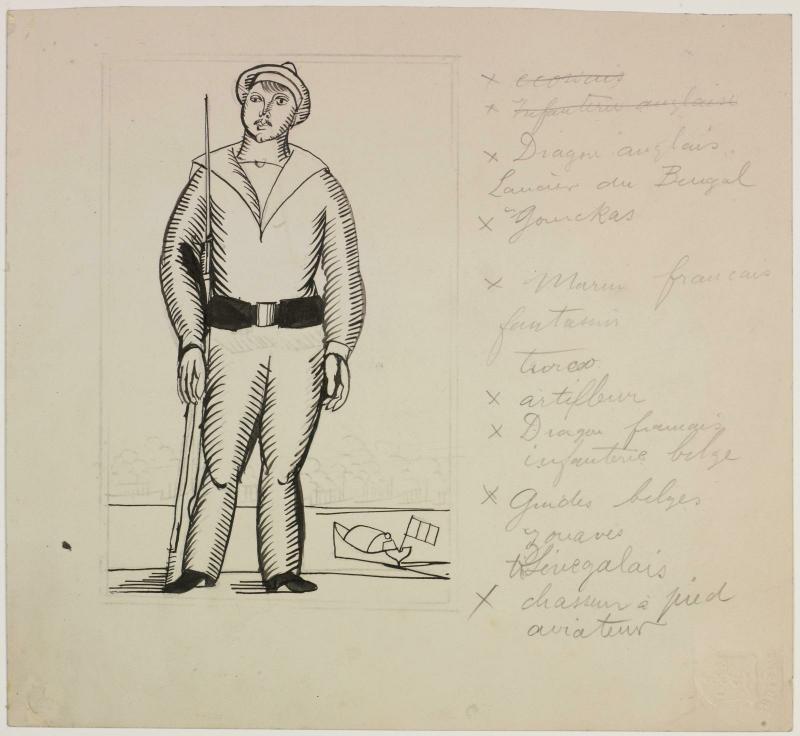 x ecossais
x Infanterie anglaise
x Dragon anglais
Lancier du Bengal
x Gourckas
x Marin francais
fantassin
turco
x artilleur
x Dragon francais
infanterie belge
x Guides belges
zouaves
Sénégalais
x chasseur à pied
aviateur